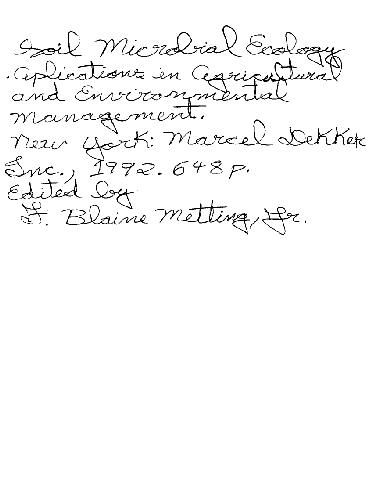 Soil Microbial Ecology
. Aplications in Agricultural
and Environmental
Management.
New York: Marcel Dekker
Inc., 1992. 648 p.
Edited by
F. Blaine Metting, Jr.